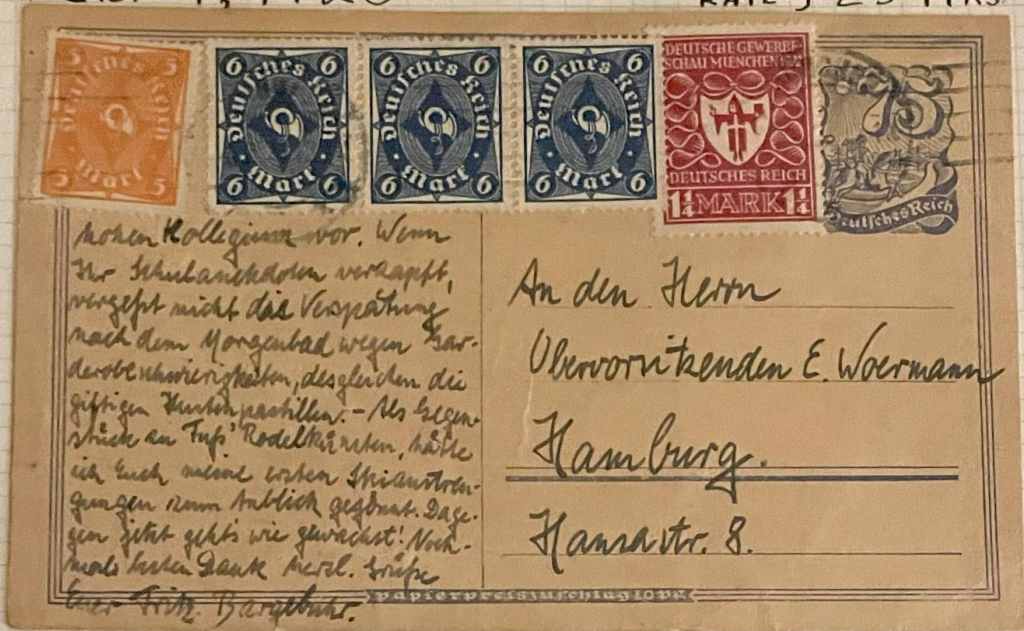 RATE 5 25 MKS
5 5
Deutsches Reich
Mark
5 5
6 6
Deutsches Reich
Mark
6 6
6 6
Deutsches Reich
Mark
6 6
6 6
Deutsches Reich
Mark
6 6
DEUTSCHE GEWERBE
SCHAU MUENCHEN
DEUTSCHES REICH
1¼ MARK 1¼
75
Deutsches Reich
hohen Kollegium vor. Wenn
Ihr Schulanekdoten verzapft,
vergeßt nicht die Verspätung
nach dem Morgenbad wegen Gar-
derobeschwierigkeiten, desgleichen die
giftigen Hustenpastillen. – Als Gegen-
stück zu Fuß' Rodelkünsten, hätte
ich Euch meine ersten Skianstren-
gungen zum Anblick gegönnt. Dage-
gen jetzt geht's wie gewachst! Noch-
mals besten Dank herzl. Grüße
Euer Fritz Bargebuhr.
An den Herrn
Obervorsitzenden E. Woermann
Hamburg.
Hansastr. 8.
Papierpreiszuschlag 10 Pf.